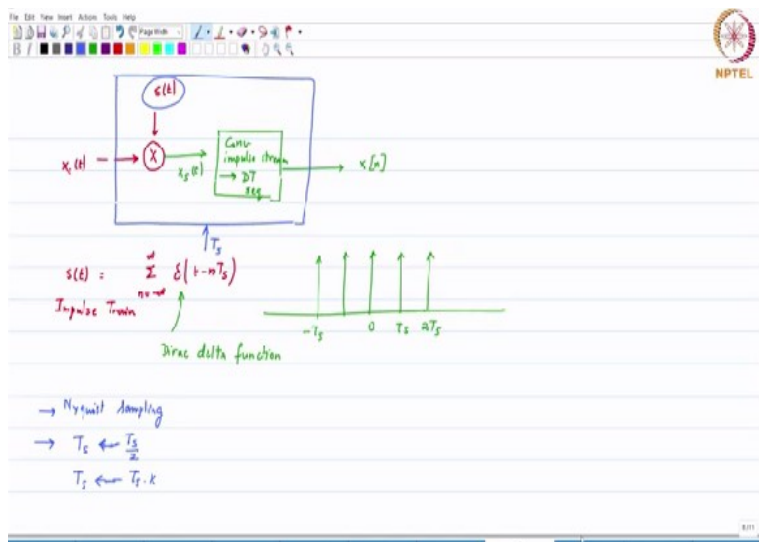 File Edit View Insert Actions Tools Help
Page Width
NPTEL
s(t)
x_c(t)
X
x_s(t)
Conv
impulse train
→ DT
seq
x[n]
T_s
s(t) = Σ δ(t-nT_s)
n=-∞
∞
Impulse Train
Dirac delta function
-T_s 0 T_s 2T_s
→ Nyquist Sampling
→ T_s ← T_s/2
T_s ← T_s . K
8/11